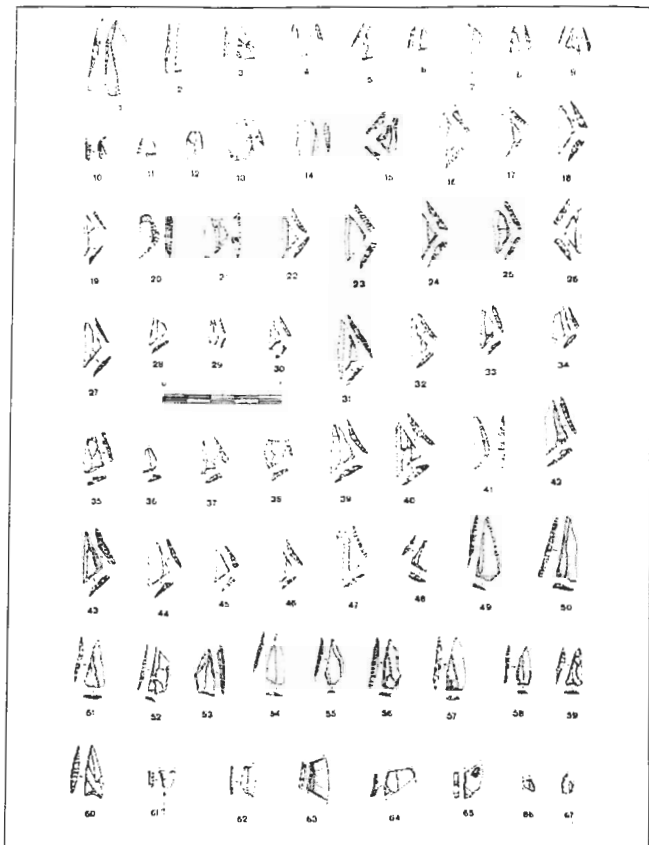 1 2 3 4 5 6 7 8 9
10 11 12 13 14 15 16 17 18
19 20 21 22 23 24 25 26
27 28 29 30 31 32 33 34
35 36 37 38 39 40 41 42
43 44 45 46 47 48 49 50
51 52 53 54 55 56 57 58 59
60 61 62 63 64 65 66 67